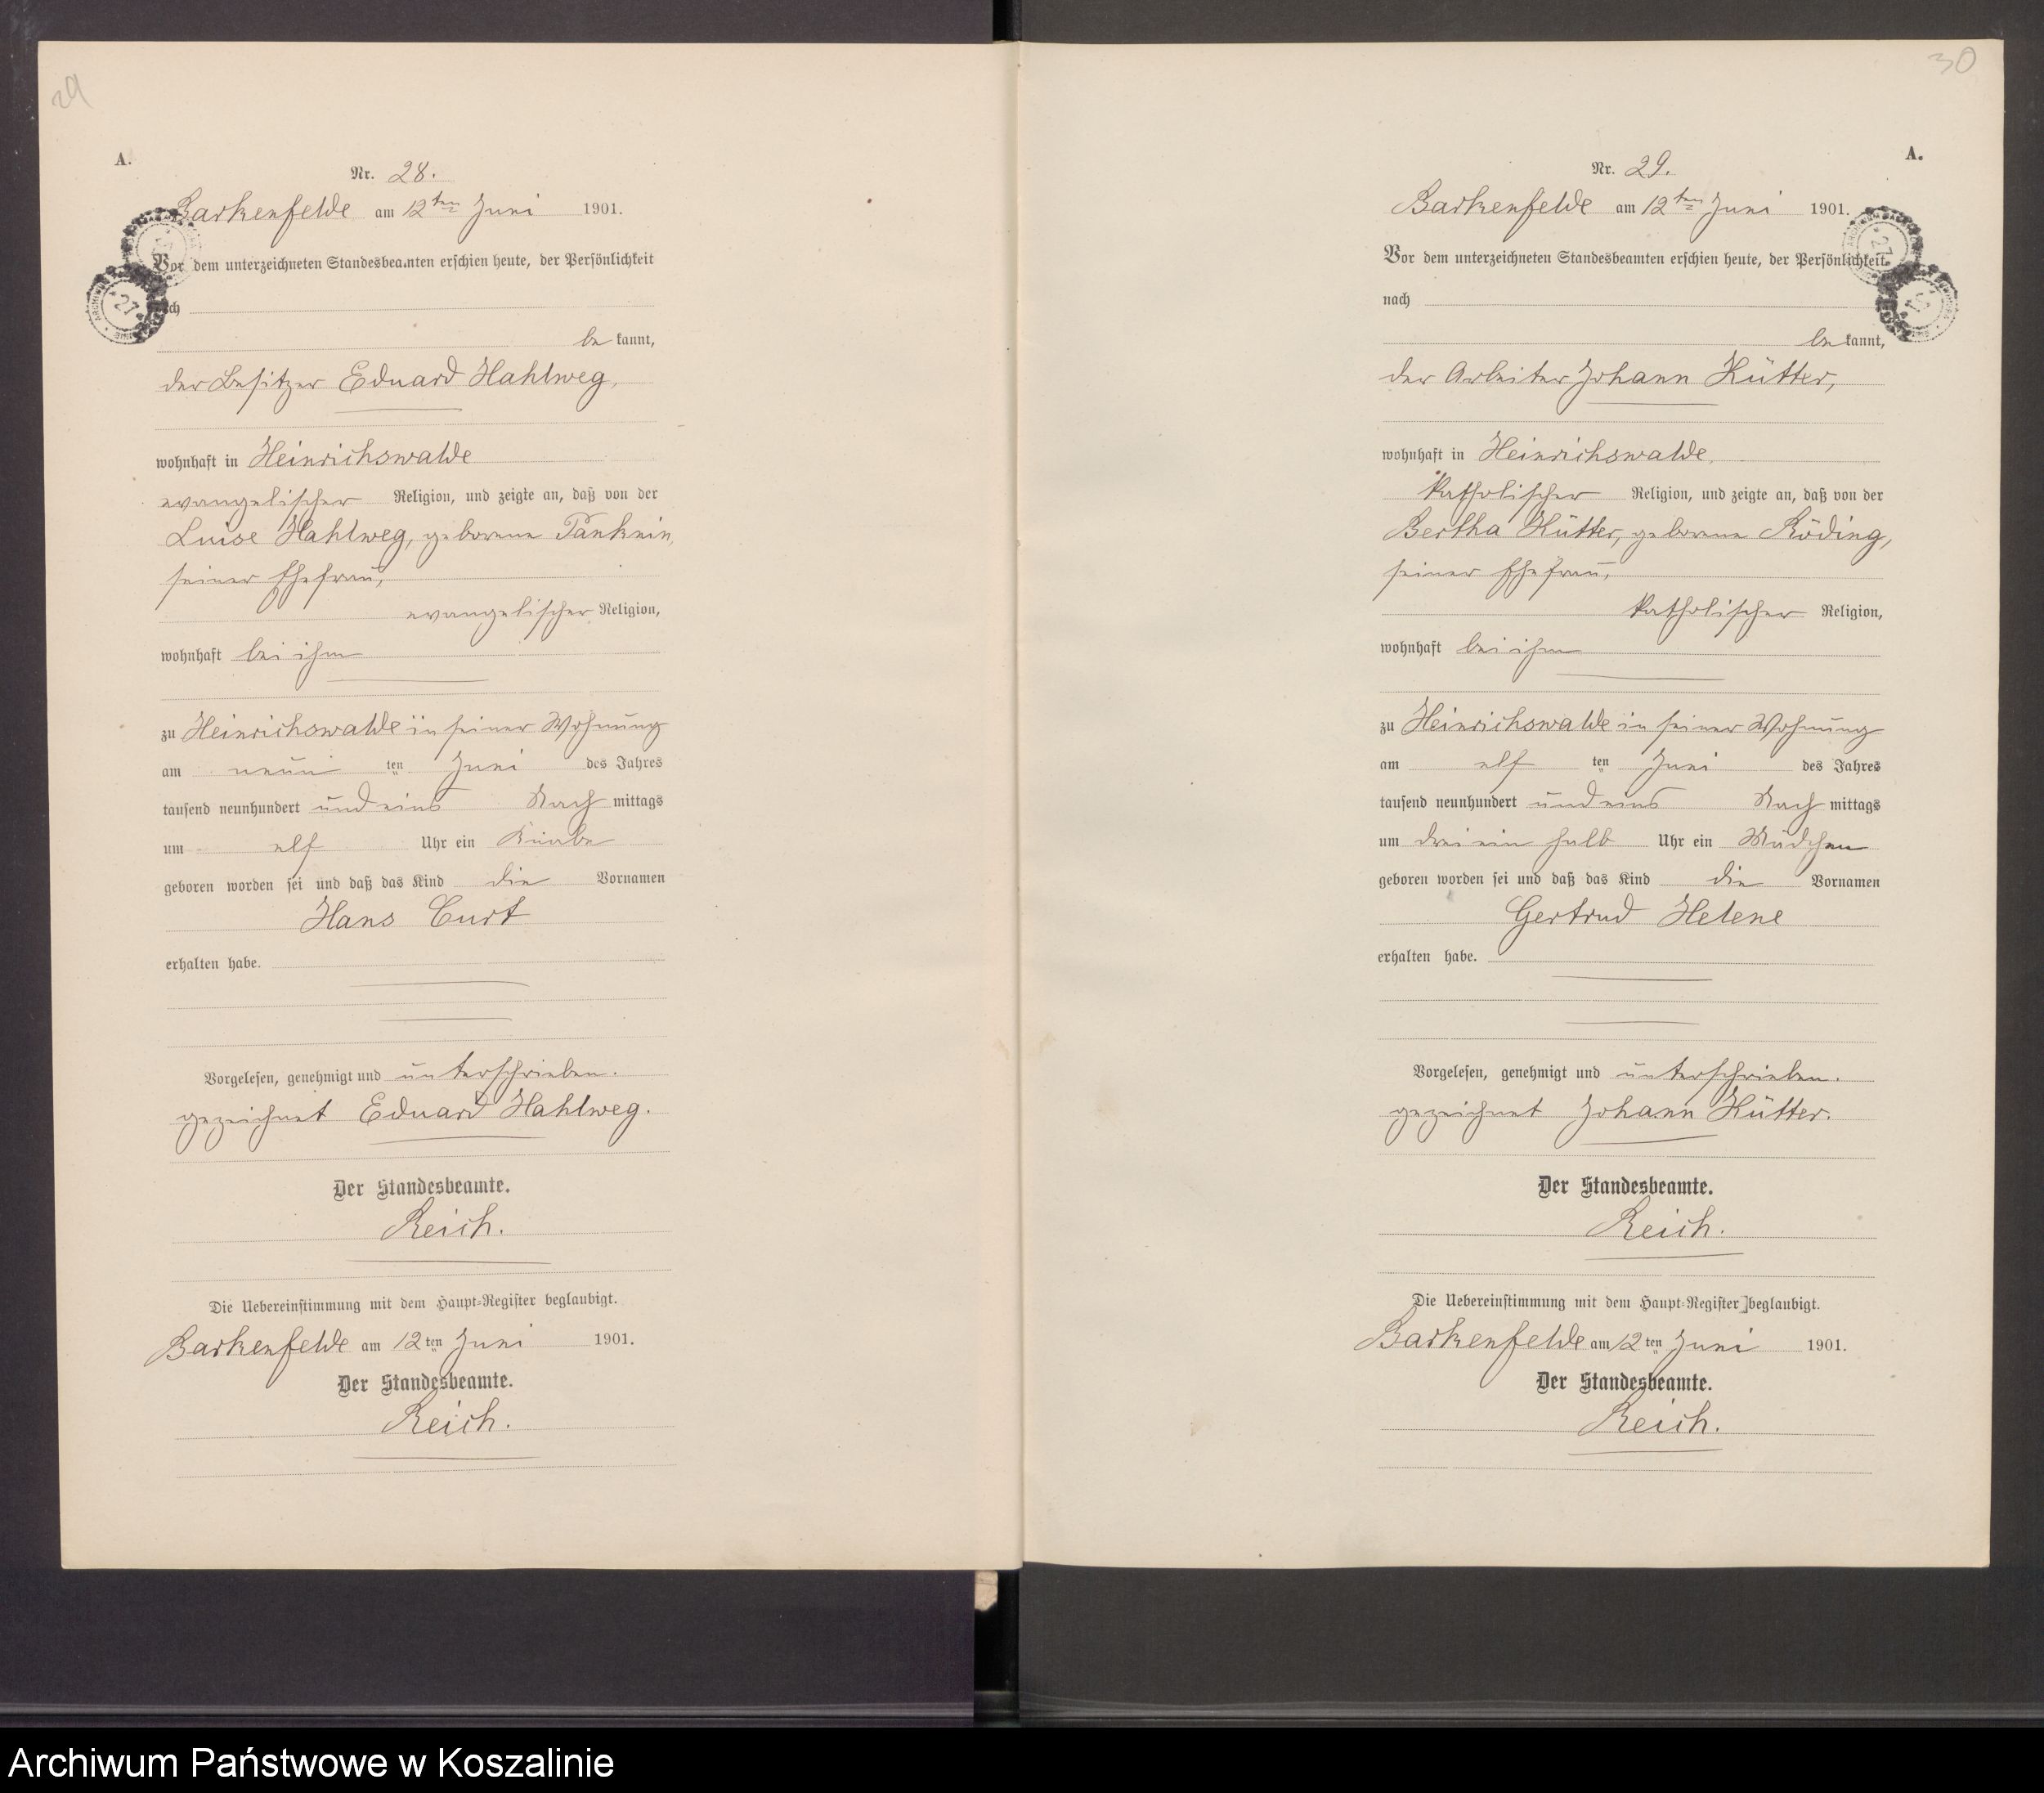 29
A.
Nr. 28.
Barkenfelde am 12ten Juni 1901.
Vor dem unterzeichneten Standesbeamten erschien heute, der Persönlichkeit
nach
be kannt,
der Besitzer Eduard Hahlweg,
wohnhaft in Heinrichswalde
evangelischer Religion, und zeigte an, daß von der
Luise Hahlweg, geborene Panknin,
seiner Ehefrau,
evangelischer Religion,
wohnhaft bei ihm
zu Heinrichswalde in seiner Wohnung
am neun ten Juni des Jahres
tausend neunhundert und eins Nach mittags
um elf Uhr ein Knabe
geboren worden sei und daß das Kind die Vornamen
Hans Curt
erhalten habe.
Vorgelesen, genehmigt und unterschrieben.
gezeichnet Eduard Hahlweg.
Der Standesbeamte.
Reich.
Die Uebereinstimmung mit dem Haupt-Register beglaubigt.
Barkenfelde am 12ten Juni 1901.
Der Standesbeamte.
Reich.
30
A.
Nr. 29.
Barkenfelde am 12ten Juni 1901.
Vor dem unterzeichneten Standesbeamten erschien heute, der Persönlichkeit
nach
be kannt,
der Arbeiter Johann Hütter,
wohnhaft in Heinrichswalde
katholischer Religion, und zeigte an, daß von der
Bertha Hütter, geborene Röding,
seiner Ehefrau,
katholischer Religion,
wohnhaft bei ihm
zu Heinrichswalde in seiner Wohnung
am elf ten Juni des Jahres
tausend neunhundert und eins Nach mittags
um drei ein halb Uhr ein Mädchen
geboren worden sei und daß das Kind die Vornamen
Gertrud Helene
erhalten habe.
Vorgelesen, genehmigt und unterschrieben.
gezeichnet Johann Hütter.
Der Standesbeamte.
Reich.
Die Uebereinstimmung mit dem Haupt-Register beglaubigt.
Barkenfelde am 12ten Juni 1901.
Der Standesbeamte.
Reich.
Archiwum Państwowe w Koszalinie